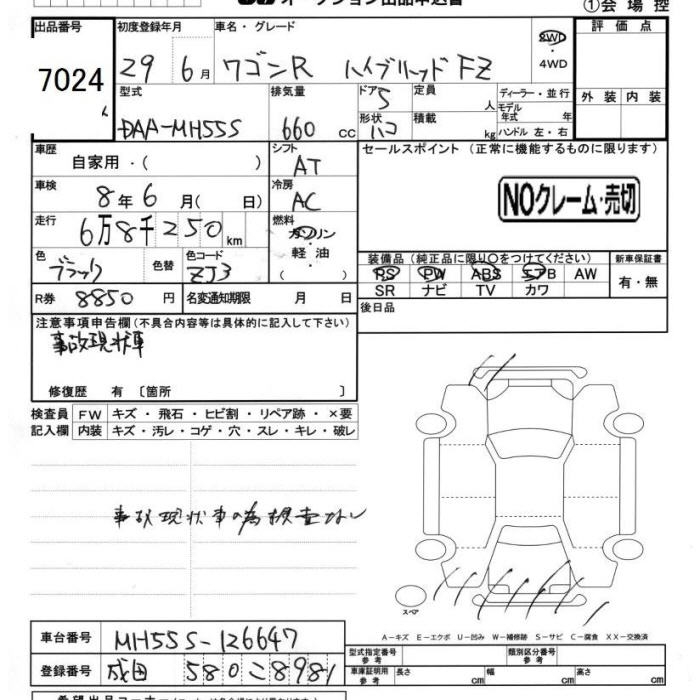 オークション出品申込書
①会場控
出品番号 初度登録年月 車名・グレード 評価点
7024 29 6月 ワゴンR ハイブリッド FZ 2WD ・4WD
型式 排気量 ドア 定員 ディーラー・並行 外装 内装
DAA-MH55S 660 cc 5 人 モデル年式 年
形状 ハコ 積載 kg ハンドル 左・右
車歴 シフト セールスポイント (正常に機能するものに限ります)
自家用・( ) AT
車検 冷房
8年 6月( 日) AC NOクレーム・売切
走行 燃料
6万8千250km ガソリン
軽油
( )
色 色替 色コード 装備品(純正品に限り○をつけてください) 新車保証書
ブラック ZJ3 PS PW ABS エアB AW 有・無
SR ナビ TV カワ
R券 8850円 名変通知期限 月 日 後日品
注意事項申告欄(不具合内容等は具体的に記入して下さい)
事故現状車
修復歴 有 〔箇所 〕
検査員 FW キズ・飛石・ヒビ割・リペア跡・×要
記入欄 内装 キズ・汚レ・コゲ・穴・スレ・キレ・破レ
事故現状車の為検査なし
スペア
A-キズ E-エクボ U-凹み W-補修跡 S-サビ C-腐食 XX-交換済
車台番号 MH55S-126647 型式指定番号 参考 類別区分番号 参考
登録番号 成田 580 こ 8981 車庫証明用 参考 長さ cm 幅 cm 高さ cm